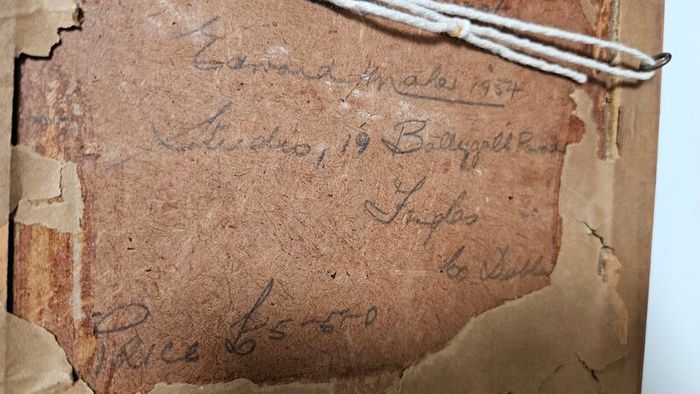 Edward Males 1954
Studio, 19 Ballygall Parade
Finglas
Co Dublin
PRICE £5-5-0